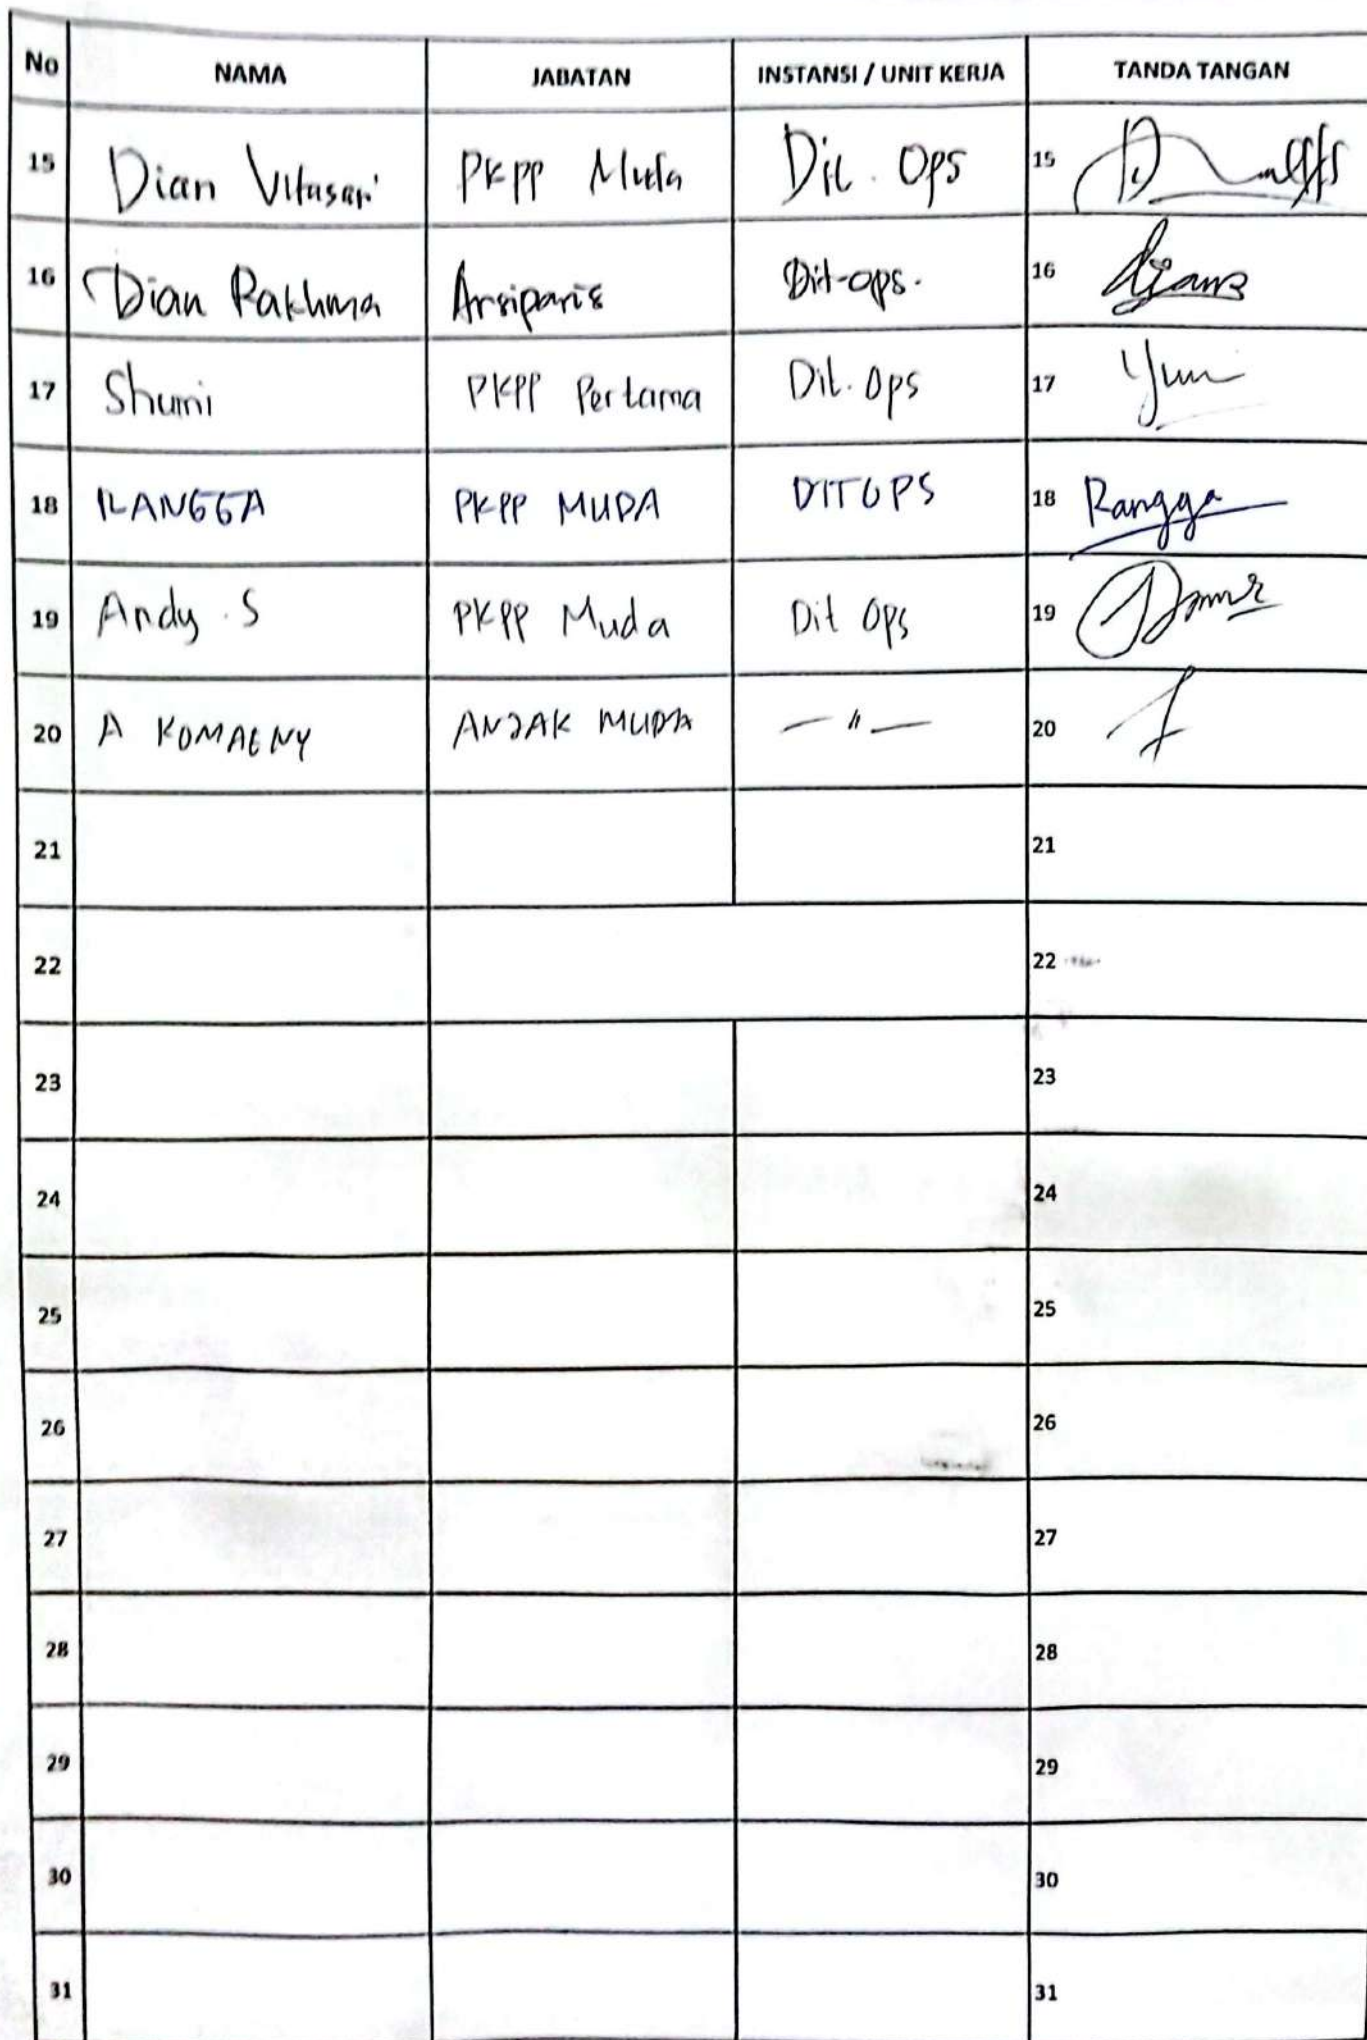 No NAMA JABATAN INSTANSI / UNIT KERJA TANDA TANGAN
15 Dian Vitasari PKPP Muda Dit. Ops 15
16 Dian Rakhma Arsiparis Dit-ops. 16
17 Shumi PKPP Pertama Dit. Ops 17 Yuni
18 RANGGA PKPP MUDA DITOPS 18 Rangga
19 Andy S PKPP Muda Dit Ops 19
20 A KOMAENY ANJAK MUDA — " — 20
21 21
22 22
23 23
24 24
25 25
26 26
27 27
28 28
29 29
30 30
31 31